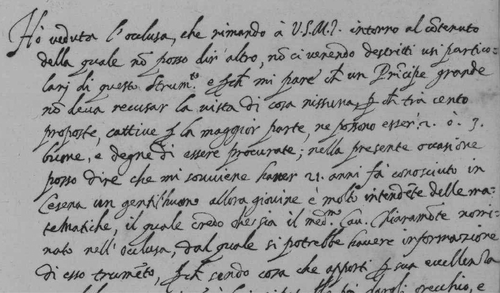 Ho veduta l'oclusa, che rimando à V.S.M.I. intorno al contenuto
della quale nõ posso dir' altro, nõ ci venendo descritti usi partico-
lari di questo strum.to e pchè mi pare ch un Principe grande
nõ deva recusar la vista di cosa nissuna, p ch trà cento
proposte, cattive p la maggior parte, ne possono esser' 2. ò 3.
buone, e degne di essere procurate; nella presente occasione
posso dire che mi sovviene haver 21. anni fà conosciuto in
Cesena un gentil'huomo allora giovine è molto intendẽte delle ma-
tematiche, il quale credo che sia il med.mo Cav. Chiaramõte nomi-
nato nell'oclusa, dal quale si potrebbe havere informazione
di esso strumẽto, pchè sendo cosa che apporti p sua eccellenza
orecchio, e